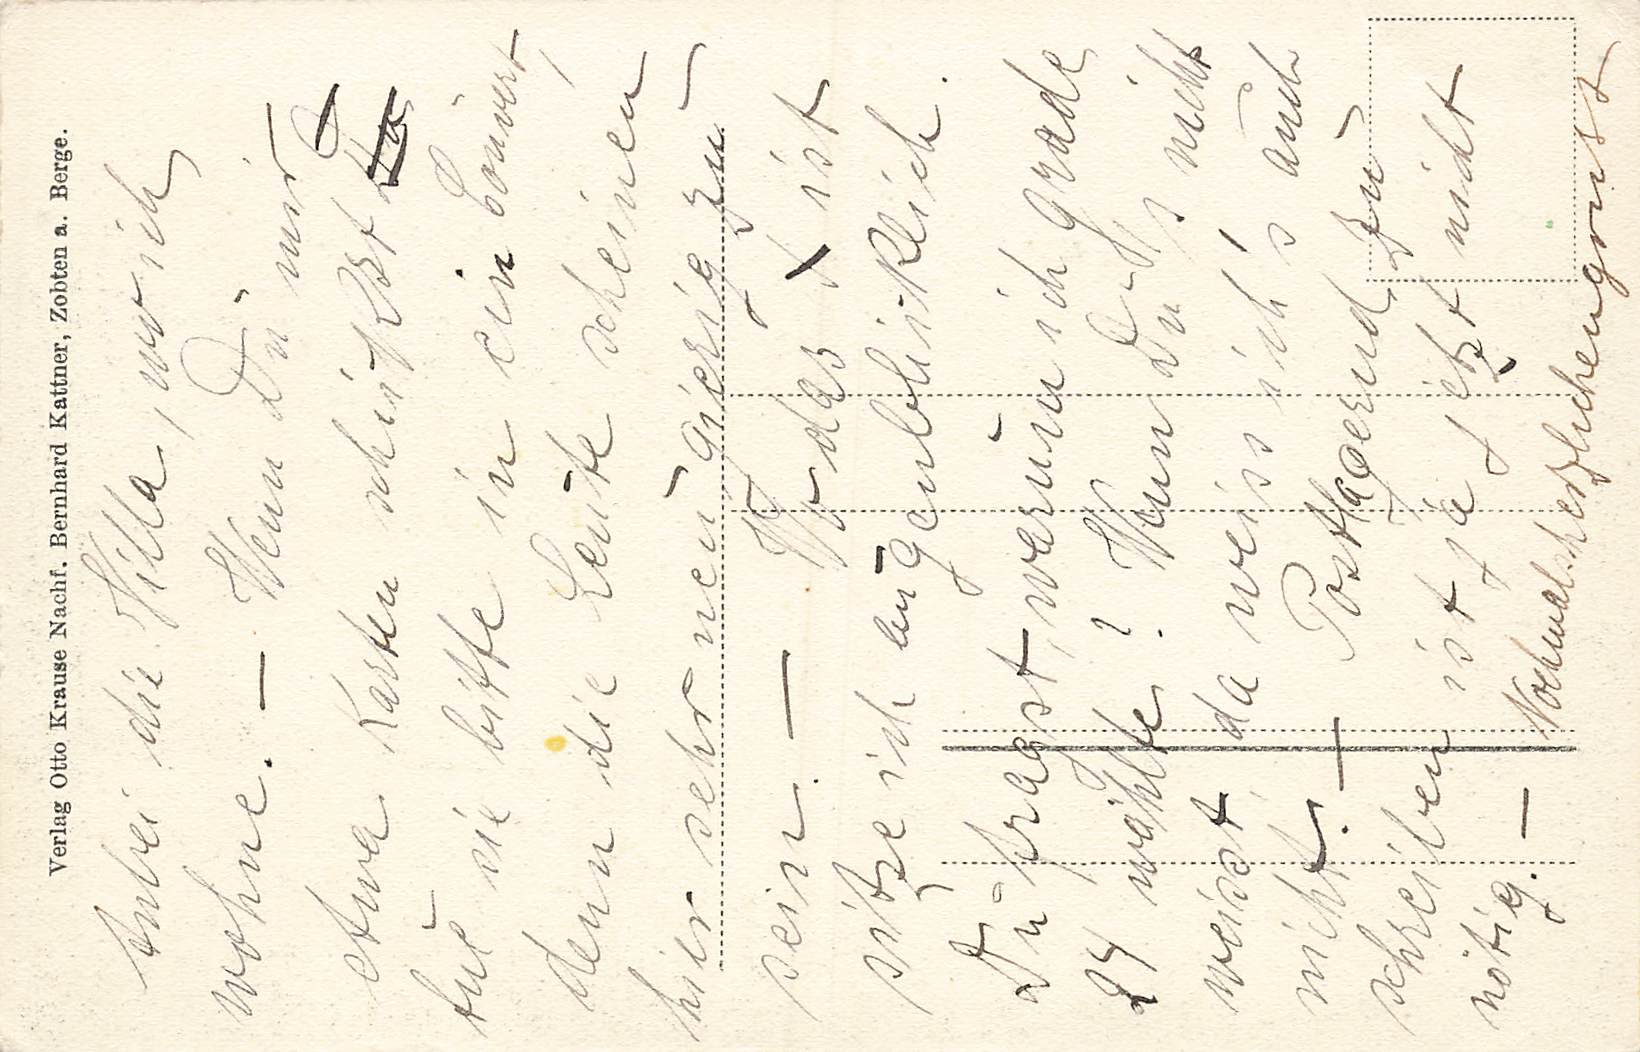 Verlag Otto Krause Nachf. Bernhard Kattner, Zobten a. Berge.
Anbei die Villa, wo ich
wohne. — Wenn Du mir
etwa Karten schickst
tue sie bitte in ein Couvert,
denn die Leute scheinen
hier sehr neugierig zu
sein. — Wo das X ist
sitze ich augenblicklich.
Du fragst, warum ich grade
24 wählte? Wenn Du's nicht
weisst, da weiss ich's auch
nicht. — Postlagernd zu
schreiben ist ja jetzt nicht
nötig. — Nochmals herzlichen Gruss